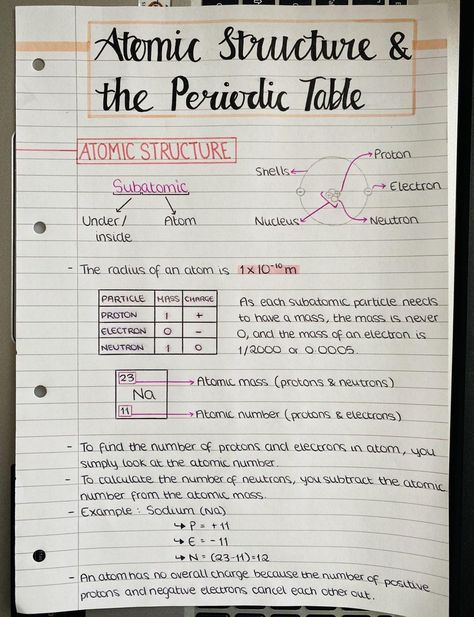 Atomic Structure &
the Periodic Table
ATOMIC STRUCTURE
Subatomic
Under/
inside
Atom
Shells
Proton
Electron
Nucleus
Neutron
- The radius of an atom is 1x10⁻¹⁰m
PARTICLE MASS CHARGE
PROTON 1 +
ELECTRON 0 -
NEUTRON 1 0
As each subatomic particle needs
to have a mass, the mass is never
0, and the mass of an electron is
1/2000 or 0.0005.
23 → Atomic mass (protons & neutrons)
Na
11 → Atomic number (protons & electrons)
- To find the number of protons and electrons in atom, you
simply look at the atomic number.
- To calculate the number of neutrons, you subtract the atomic
number from the atomic mass.
- Example: Sodium (Na)
↳ P = +11
↳ E = -11
↳ N = (23-11)=12
- An atom has no overall charge because the number of positive
protons and negative electrons cancel each other out.